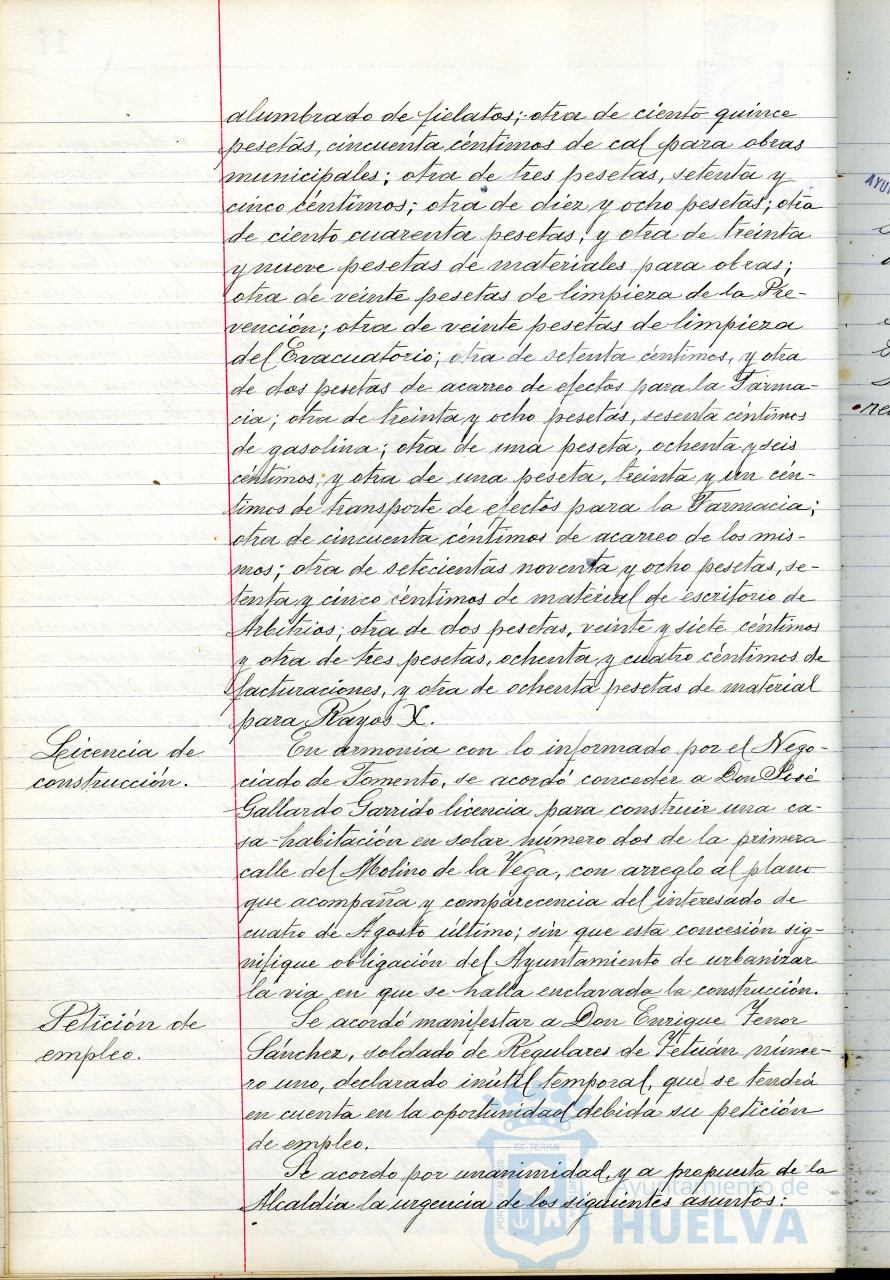 alumbrado de fielatos; otra de ciento quince
pesetas, cincuenta céntimos de cal para obras
municipales; otra de tres pesetas, setenta y
cinco céntimos; otra de diez y ocho pesetas; otra
de ciento cuarenta pesetas; y otra de treinta
y nueve pesetas de materiales para obras;
otra de veinte pesetas de limpieza de la Pre-
vención; otra de veinte pesetas de limpieza
del Evacuatorio; otra de setenta céntimos, y otra
de dos pesetas de acarreo de efectos para la Farma-
cia; otra de treinta y ocho pesetas, sesenta céntimos
de gasolina; otra de una peseta, ochenta y seis
céntimos, y otra de una peseta, treinta y un cén-
timos de transporte de efectos para la Farmacia;
otra de cincuenta céntimos de acarreo de los mis-
mos; otra de setecientas noventa y ocho pesetas, se-
tenta y cinco céntimos de material de escritorio de
Arbitrios; otra de dos pesetas, veinte y siete céntimos
y otra de tres pesetas, ochenta y cuatro céntimos de
facturaciones, y otra de ochenta pesetas de material
para Rayos X.
Licencia de
construcción.
En armonía con lo informado por el Nego-
ciado de Fomento, se acordó conceder a Don José
Gallardo Garrido licencia para construir una ca-
sa-habitación en solar número dos de la primera
calle del Molino de la Vega, con arreglo al plano
que acompaña y comparecencia del interesado de
cuatro de Agosto último; sin que esta concesión sig-
nifique obligación del Ayuntamiento de urbanizar
la via en que se halla enclavada la construcción.
Petición de
empleo.
Se acordó manifestar a Don Enrique Tenor
Sánchez, soldado de Regulares de Tetuán núme-
ro uno, declarado inútil temporal, que se tendrá
en cuenta en la oportunidad debida su petición
de empleo.
Se acordo por unanimidad, y a propuesta de la
Alcaldía la urgencia de los siguientes asuntos:
Ayuntamiento de
HUELVA